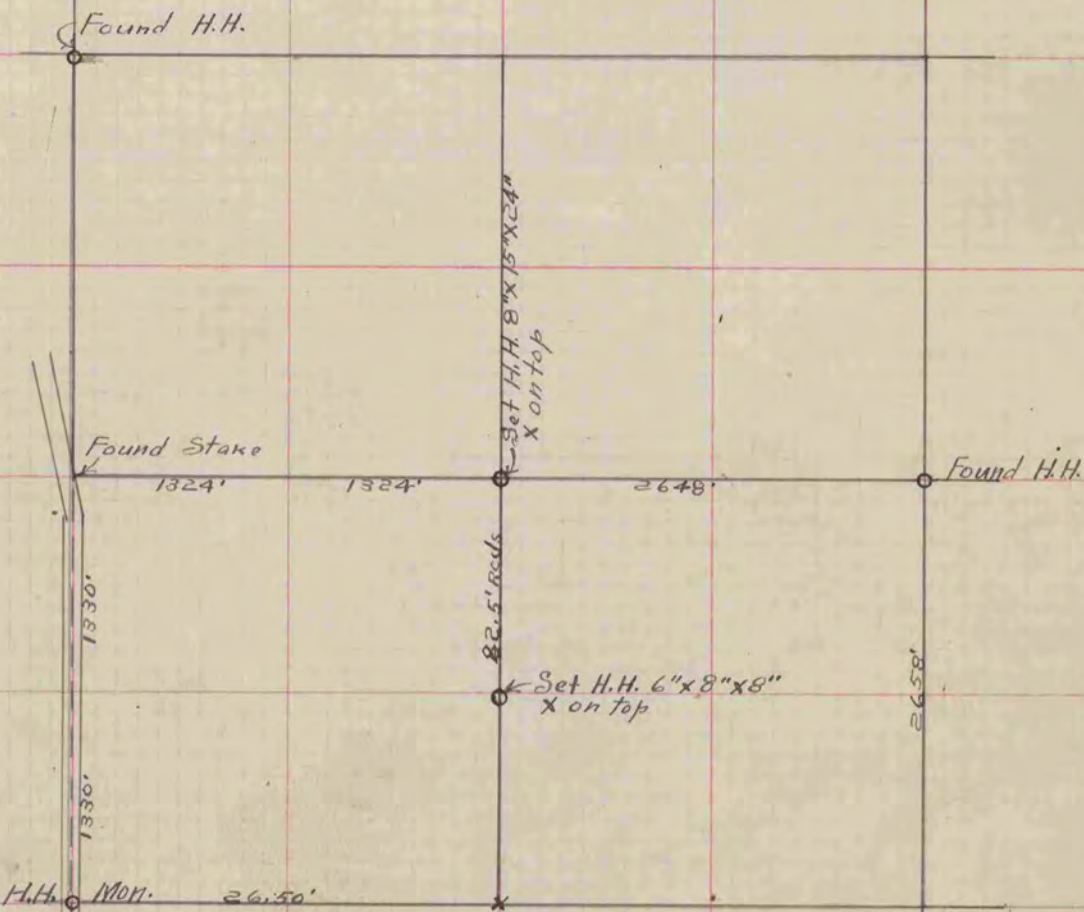 Found H.H.
Set H.H. 8"X15"X24"
X on top
Found Stake
1324'
1324'
2648'
Found H.H.
1330'
82.5' Rods
Set H.H. 6"x8"x8"
X on top
2658'
1330'
H.H. Mon.
26.50'